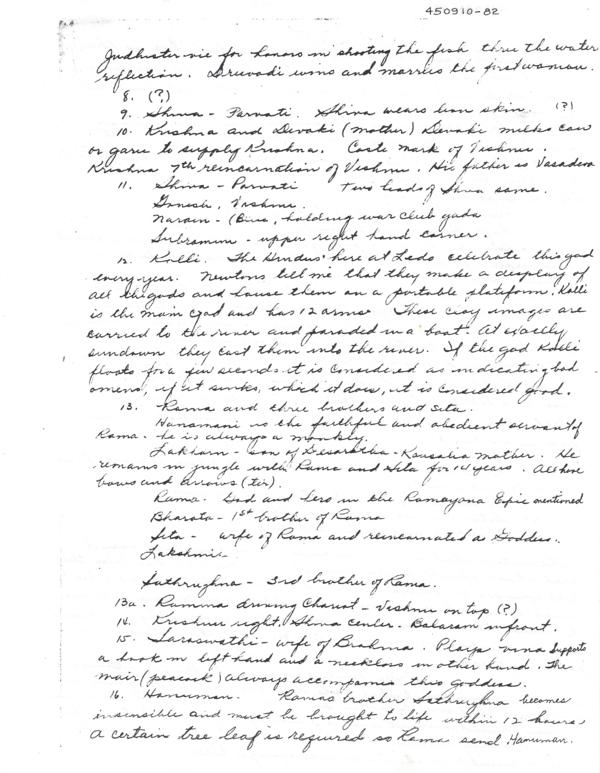 450910-82
Judhister vie for honors in shooting the fish thru the water
reflection. Druvadi wins and marries the first woman.
8. (?)
9. Shiva - Parvati. Shiva wears lion skin. (?)
10. Krishna and Devaki (mother) Devaki milks cow
or garu to supply Krishna. Caste mark of Vishnu.
Krishna 7th reincarnation of Vishnu. His father is Vasadeva
11. Shiva - Parvati Two heads of Shiva same.
Ganesh, Vishnu.
Narain - (Bius, holding war club gada
Subramum - upper right hand corner.
12. Kalli. The Hindus here at Ledo celebrate this god
every year. Newtons tell me that they make a display of
all the gods and house them on a portable plateform. Kalli
is the main god and has 12 arms. These clay images are
carried to the river and paraded in a boat. At exactly
sundown they cast them into the river. If the god Kalli
floats for a few seconds it is considered as indicating bad
omens, if it sinks, which it does, it is considered good.
13. Rama and three brothers and Sita.
Hanamani is the faithful and obedient servant of
Rama. he is always a monkey.
Lakham - son of Desaratha - Kausalia mother. He
remains in jungle with Rama and Sita for 14 years. All have
bows and arrows (tir).
Rama. God and hero in the Ramayana Epic mentioned
Bharata - 1st brother of Rama
Sita - wife of Rama and reincarnated as Goddess.
Lakshmi
Sathrughna - 3rd brother of Rama.
13a. Ramma driving Chariot - Vishnu on top (?)
14. Krishna right, Shiva center. Balaram in front.
15. Saraswathi - wife of Brahma. Plays vina supports
a book in left hand and a necklass in other hand. The
muir (peacock) always accompanies this goddess.
16. Hanuman. Ramas brother Sathrughna becomes
insensible and must be brought to life within 12 hours.
A certain tree leaf is required so Rama send Hanuman.